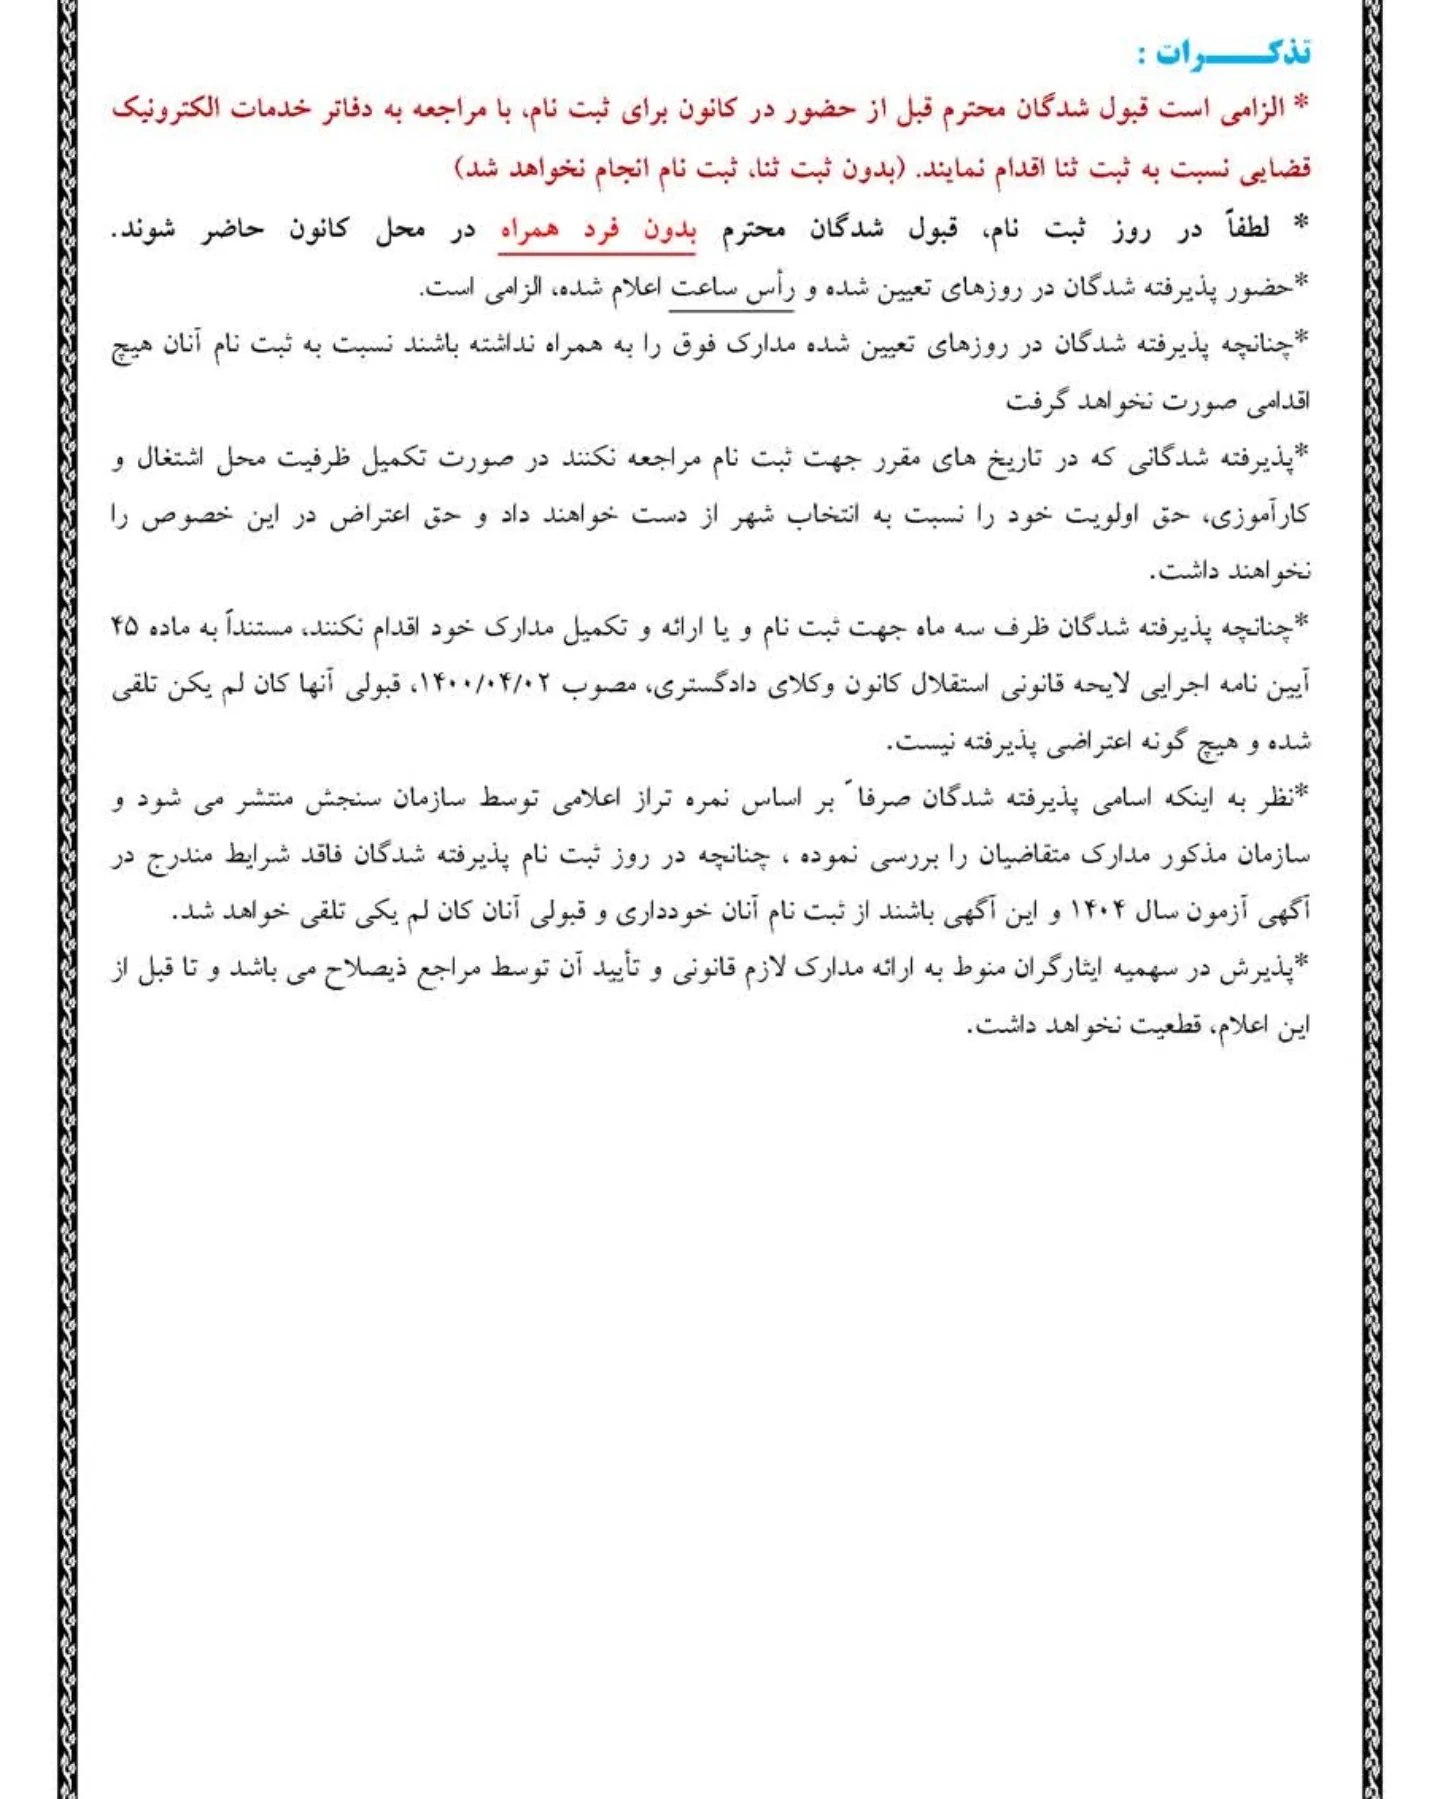 تذکـــــرات :
* الزامی است قبول شدگان محترم قبل از حضور در کانون برای ثبت نام، با مراجعه به دفاتر خدمات الکترونیک
قضایی نسبت به ثبت ثنا اقدام نمایند. (بدون ثبت ثنا، ثبت نام انجام نخواهد شد)
* لطفاً در روز ثبت نام، قبول شدگان محترم بدون فرد همراه در محل کانون حاضر شوند.
*حضور پذیرفته شدگان در روزهای تعیین شده و رأس ساعت اعلام شده، الزامی است.
*چنانچه پذیرفته شدگان در روزهای تعیین شده مدارک فوق را به همراه نداشته باشند نسبت به ثبت نام آنان هیچ
اقدامی صورت نخواهد گرفت
*پذیرفته شدگانی که در تاریخ های مقرر جهت ثبت نام مراجعه نکنند در صورت تکمیل ظرفیت محل اشتغال و
کارآموزی، حق اولویت خود را نسبت به انتخاب شهر از دست خواهند داد و حق اعتراض در این خصوص را
نخواهند داشت.
*چنانچه پذیرفته شدگان ظرف سه ماه جهت ثبت نام و یا ارائه و تکمیل مدارک خود اقدام نکنند، مستنداً به ماده ۴۵
آیین نامه اجرایی لایحه قانونی استقلال کانون وکلای دادگستری، مصوب ۱۴۰۰/۰۴/۰۲، قبولی آنها کان لم یکن تلقی
شده و هیچ گونه اعتراضی پذیرفته نیست.
*نظر به اینکه اسامی پذیرفته شدگان صرفا ً بر اساس نمره تراز اعلامی توسط سازمان سنجش منتشر می شود و
سازمان مذکور مدارک متقاضیان را بررسی نموده ، چنانچه در روز ثبت نام پذیرفته شدگان فاقد شرایط مندرج در
آگهی آزمون سال ۱۴۰۴ و این آگهی باشند از ثبت نام آنان خودداری و قبولی آنان کان لم یکی تلقی خواهد شد.
*پذیرش در سهمیه ایثارگران منوط به ارائه مدارک لازم قانونی و تأیید آن توسط مراجع ذیصلاح می باشد و تا قبل از
این اعلام، قطعیت نخواهد داشت.